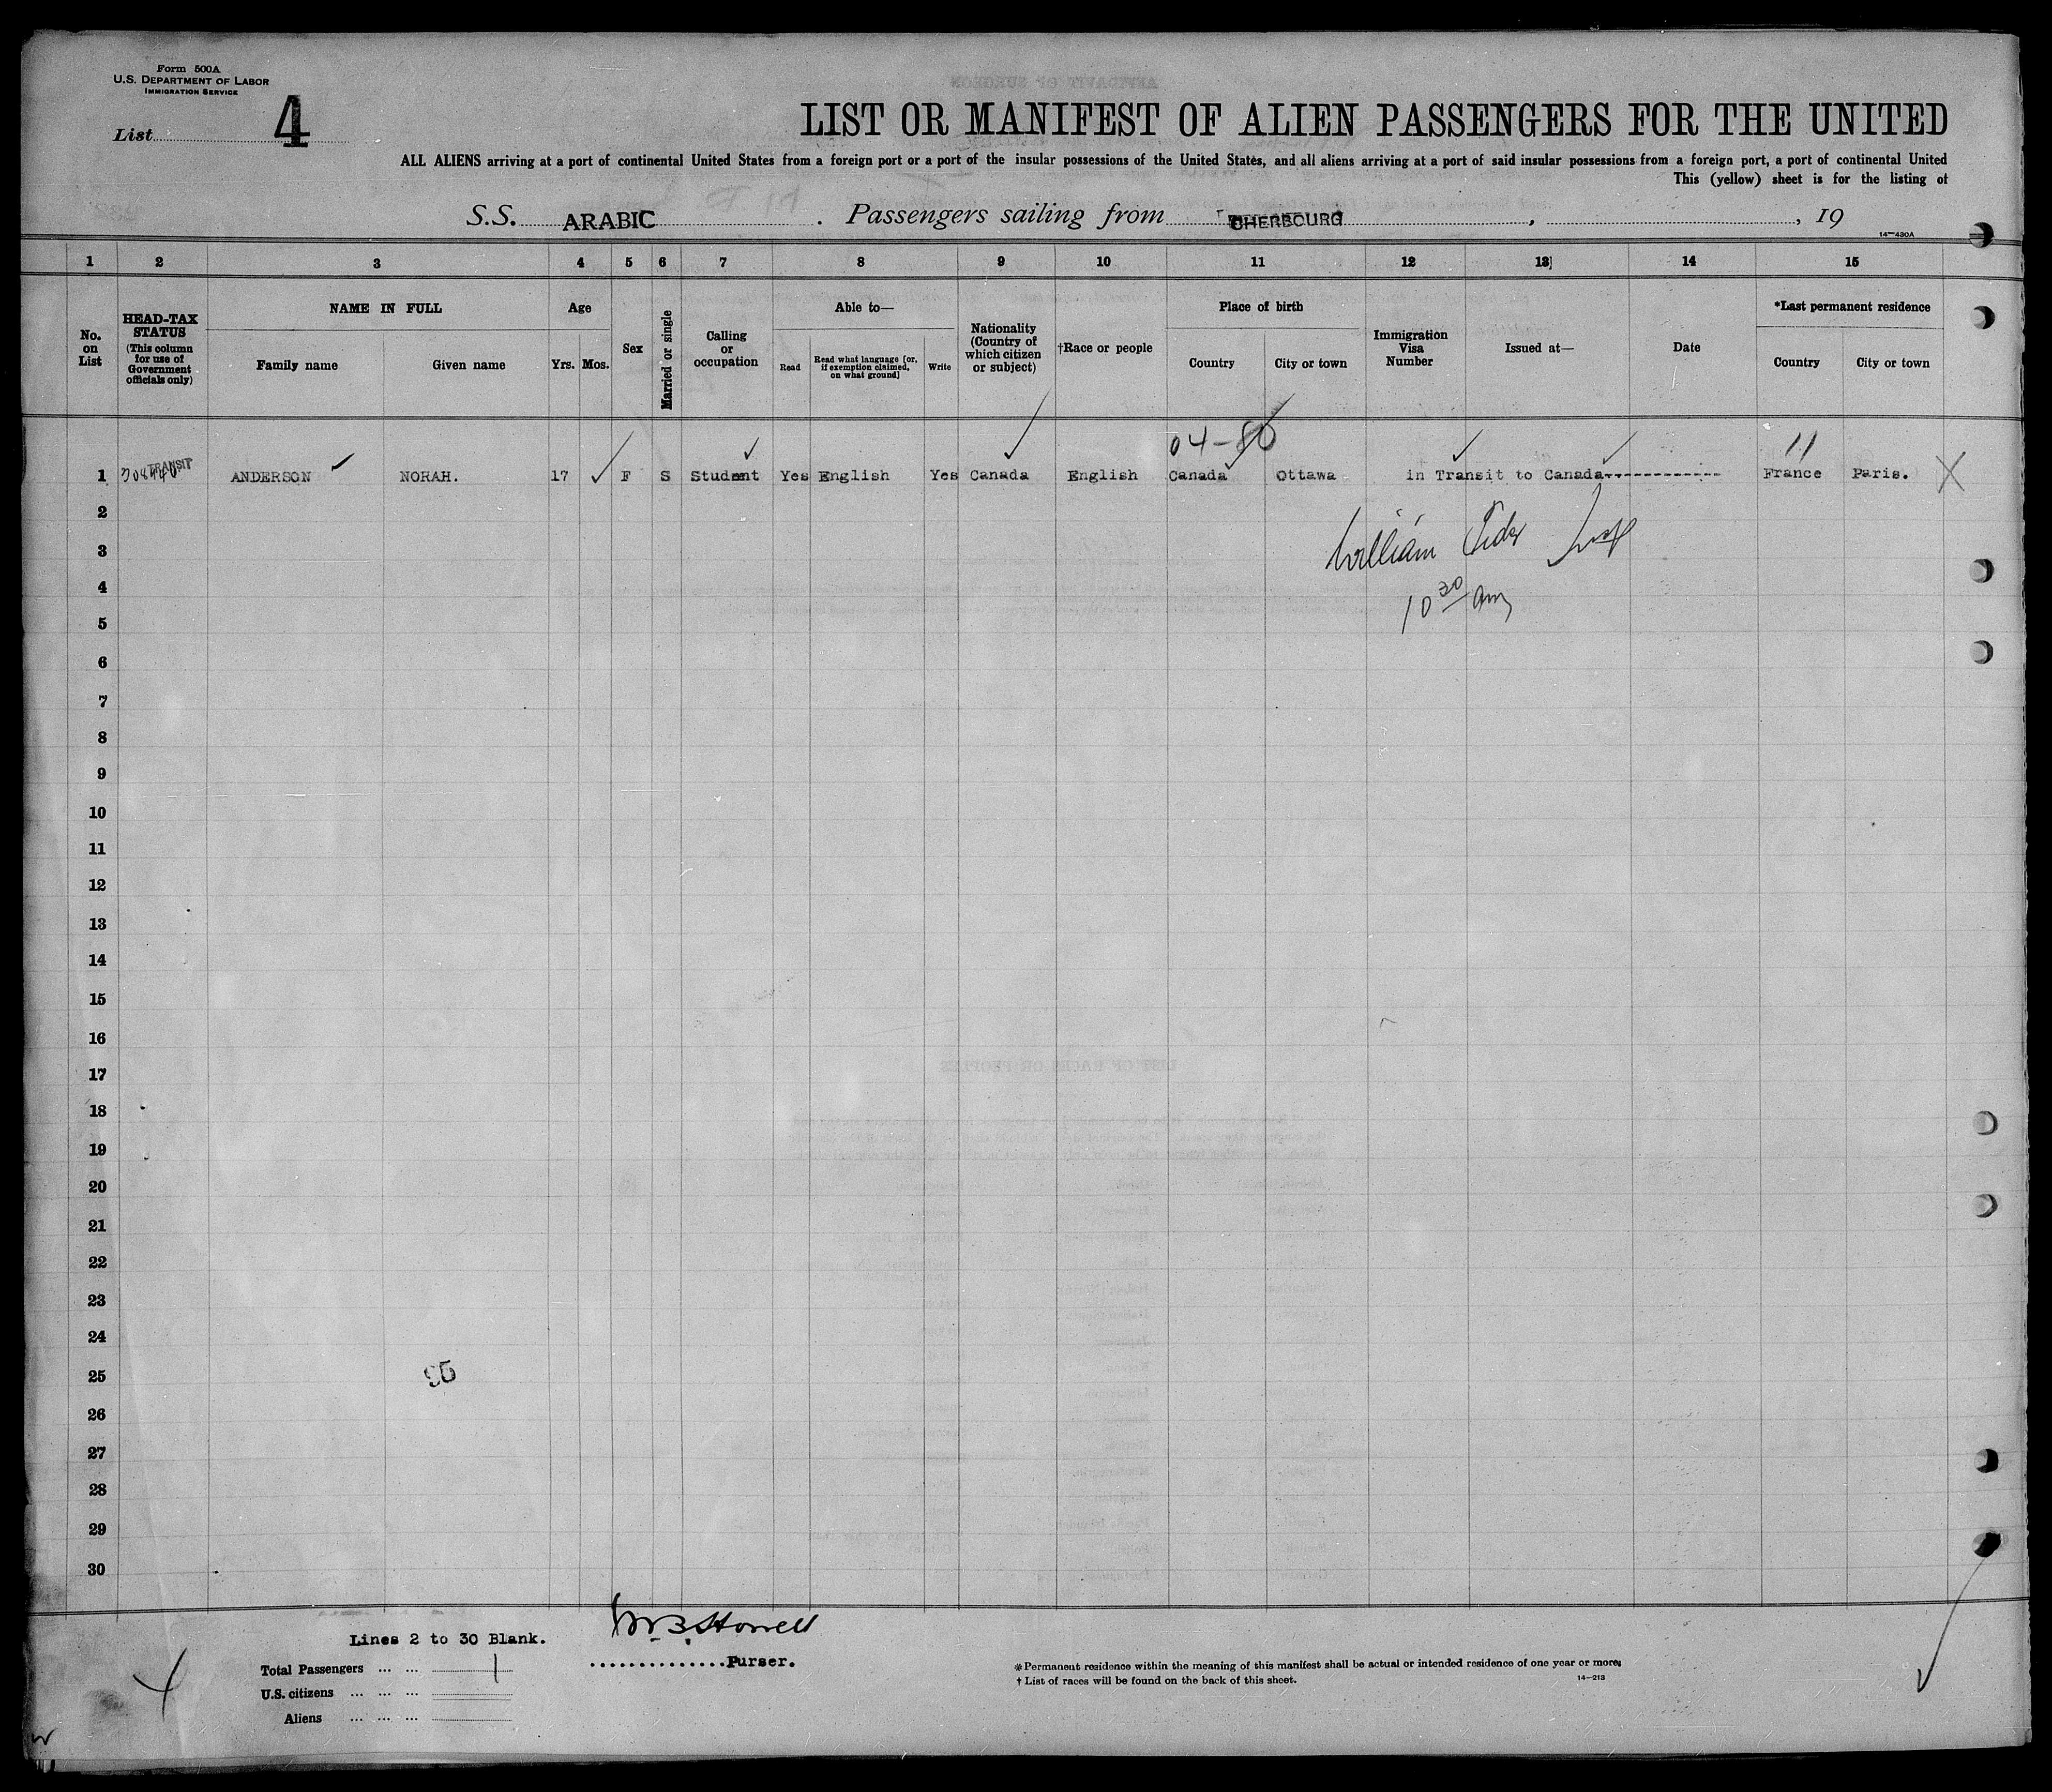 Form 500A
U.S. DEPARTMENT OF LABOR
IMMIGRATION SERVICE
List 4
LIST OR MANIFEST OF ALIEN PASSENGERS FOR THE UNITED
ALL ALIENS arriving at a port of continental United States from a foreign port or a port of the insular possessions of the United States, and all aliens arriving at a port of said insular possessions from a foreign port, a port of continental United
This (yellow) sheet is for the listing of
S.S. ARABIC. Passengers sailing from CHERBOURG, , 19
14—430A
1 2 3 4 5 6 7 8 9 10 11 12 13 14 15
No. on List
HEAD-TAX STATUS (This column for use of Government officials only)
NAME IN FULL
Family name Given name
Age
Yrs. Mos.
Sex
Married or single
Calling or occupation
Able to—
Read
Read what language [or, if exemption claimed, on what ground]
Write
Nationality (Country of which citizen or subject)
†Race or people
Place of birth
Country City or town
Immigration Visa Number
Issued at—
Date
*Last permanent residence
Country City or town
04-80 11
1 TRANSIT ANDERSON NORAH. 17 F S Student Yes English Yes Canada English Canada Ottawa in Transit to Canada------------ France Paris. X
2
3 William
4
10 30 am
5
6
7
8
9
10
11
12
13
14
15
16
17
18
19
20
21
22
23
24
25
26
27
28
29
30
95
Lines 2 to 30 Blank.
Total Passengers ... ... 1
U.S. citizens ... ... ...
Aliens ... ... ...
..............Purser.
*Permanent residence within the meaning of this manifest shall be actual or intended residence of one year or more.
† List of races will be found on the back of this sheet.
14—213